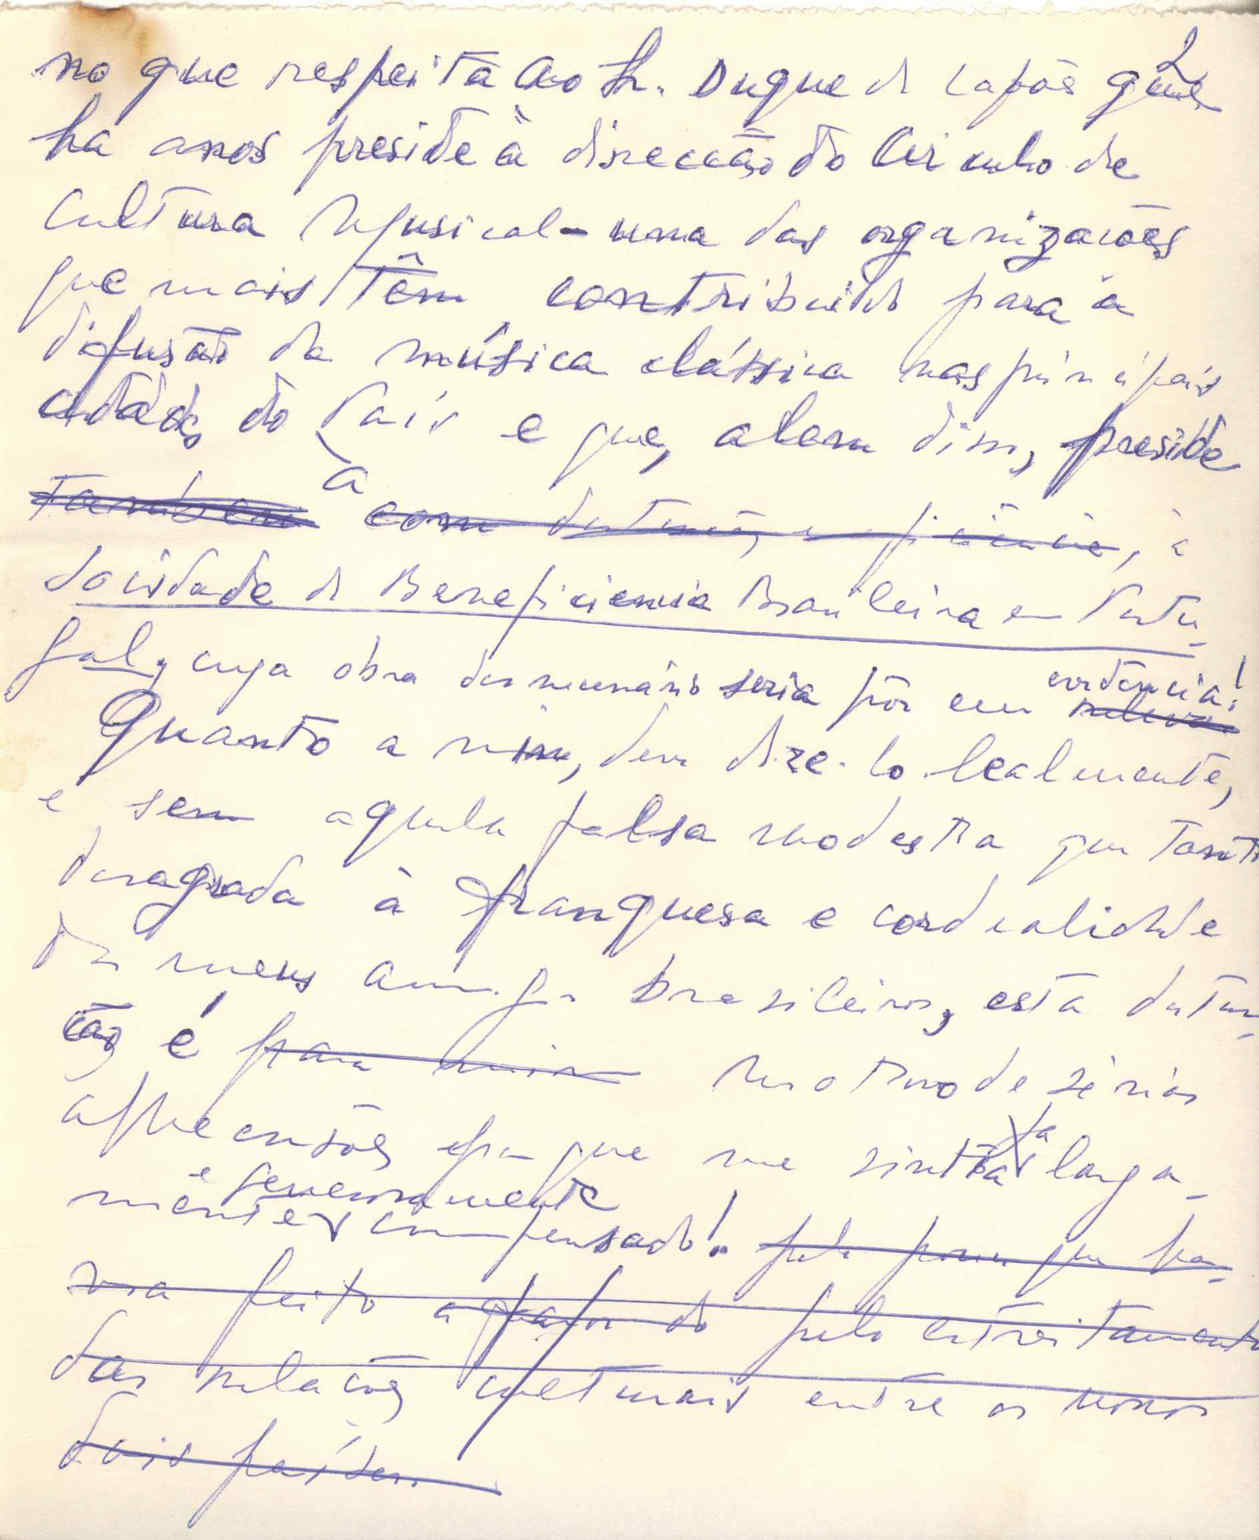 2
no que respeita ao Sr. Duque de Lafões que
ha anos preside à direcção do Circulo de
Cultura Musical - uma das organizações
que mais têm contribuido para a
difusão da música clássica nas principais
cidades do País e que, alem disso, preside
tambem a com distinção, e eficiência, à
Sociedade de Beneficiencia Brasileira em Portu-
gal, cuja obra desnecessário seria pôr em evidência! relevo
Quanto a mim, devo dize-lo lealmente,
e sem aquela falsa modestia que tanto
desagrada à franquesa e cordealidade
dos meus amigos brasileiros, esta distin-
ção é para mim motivo de sérias
apreensões e para que me sinta larga-
mente e generosamente compensado! pelo pouco que ha-
via feito a favor do pelo estreitamento
das relações culturais entre os nossos
dois países.